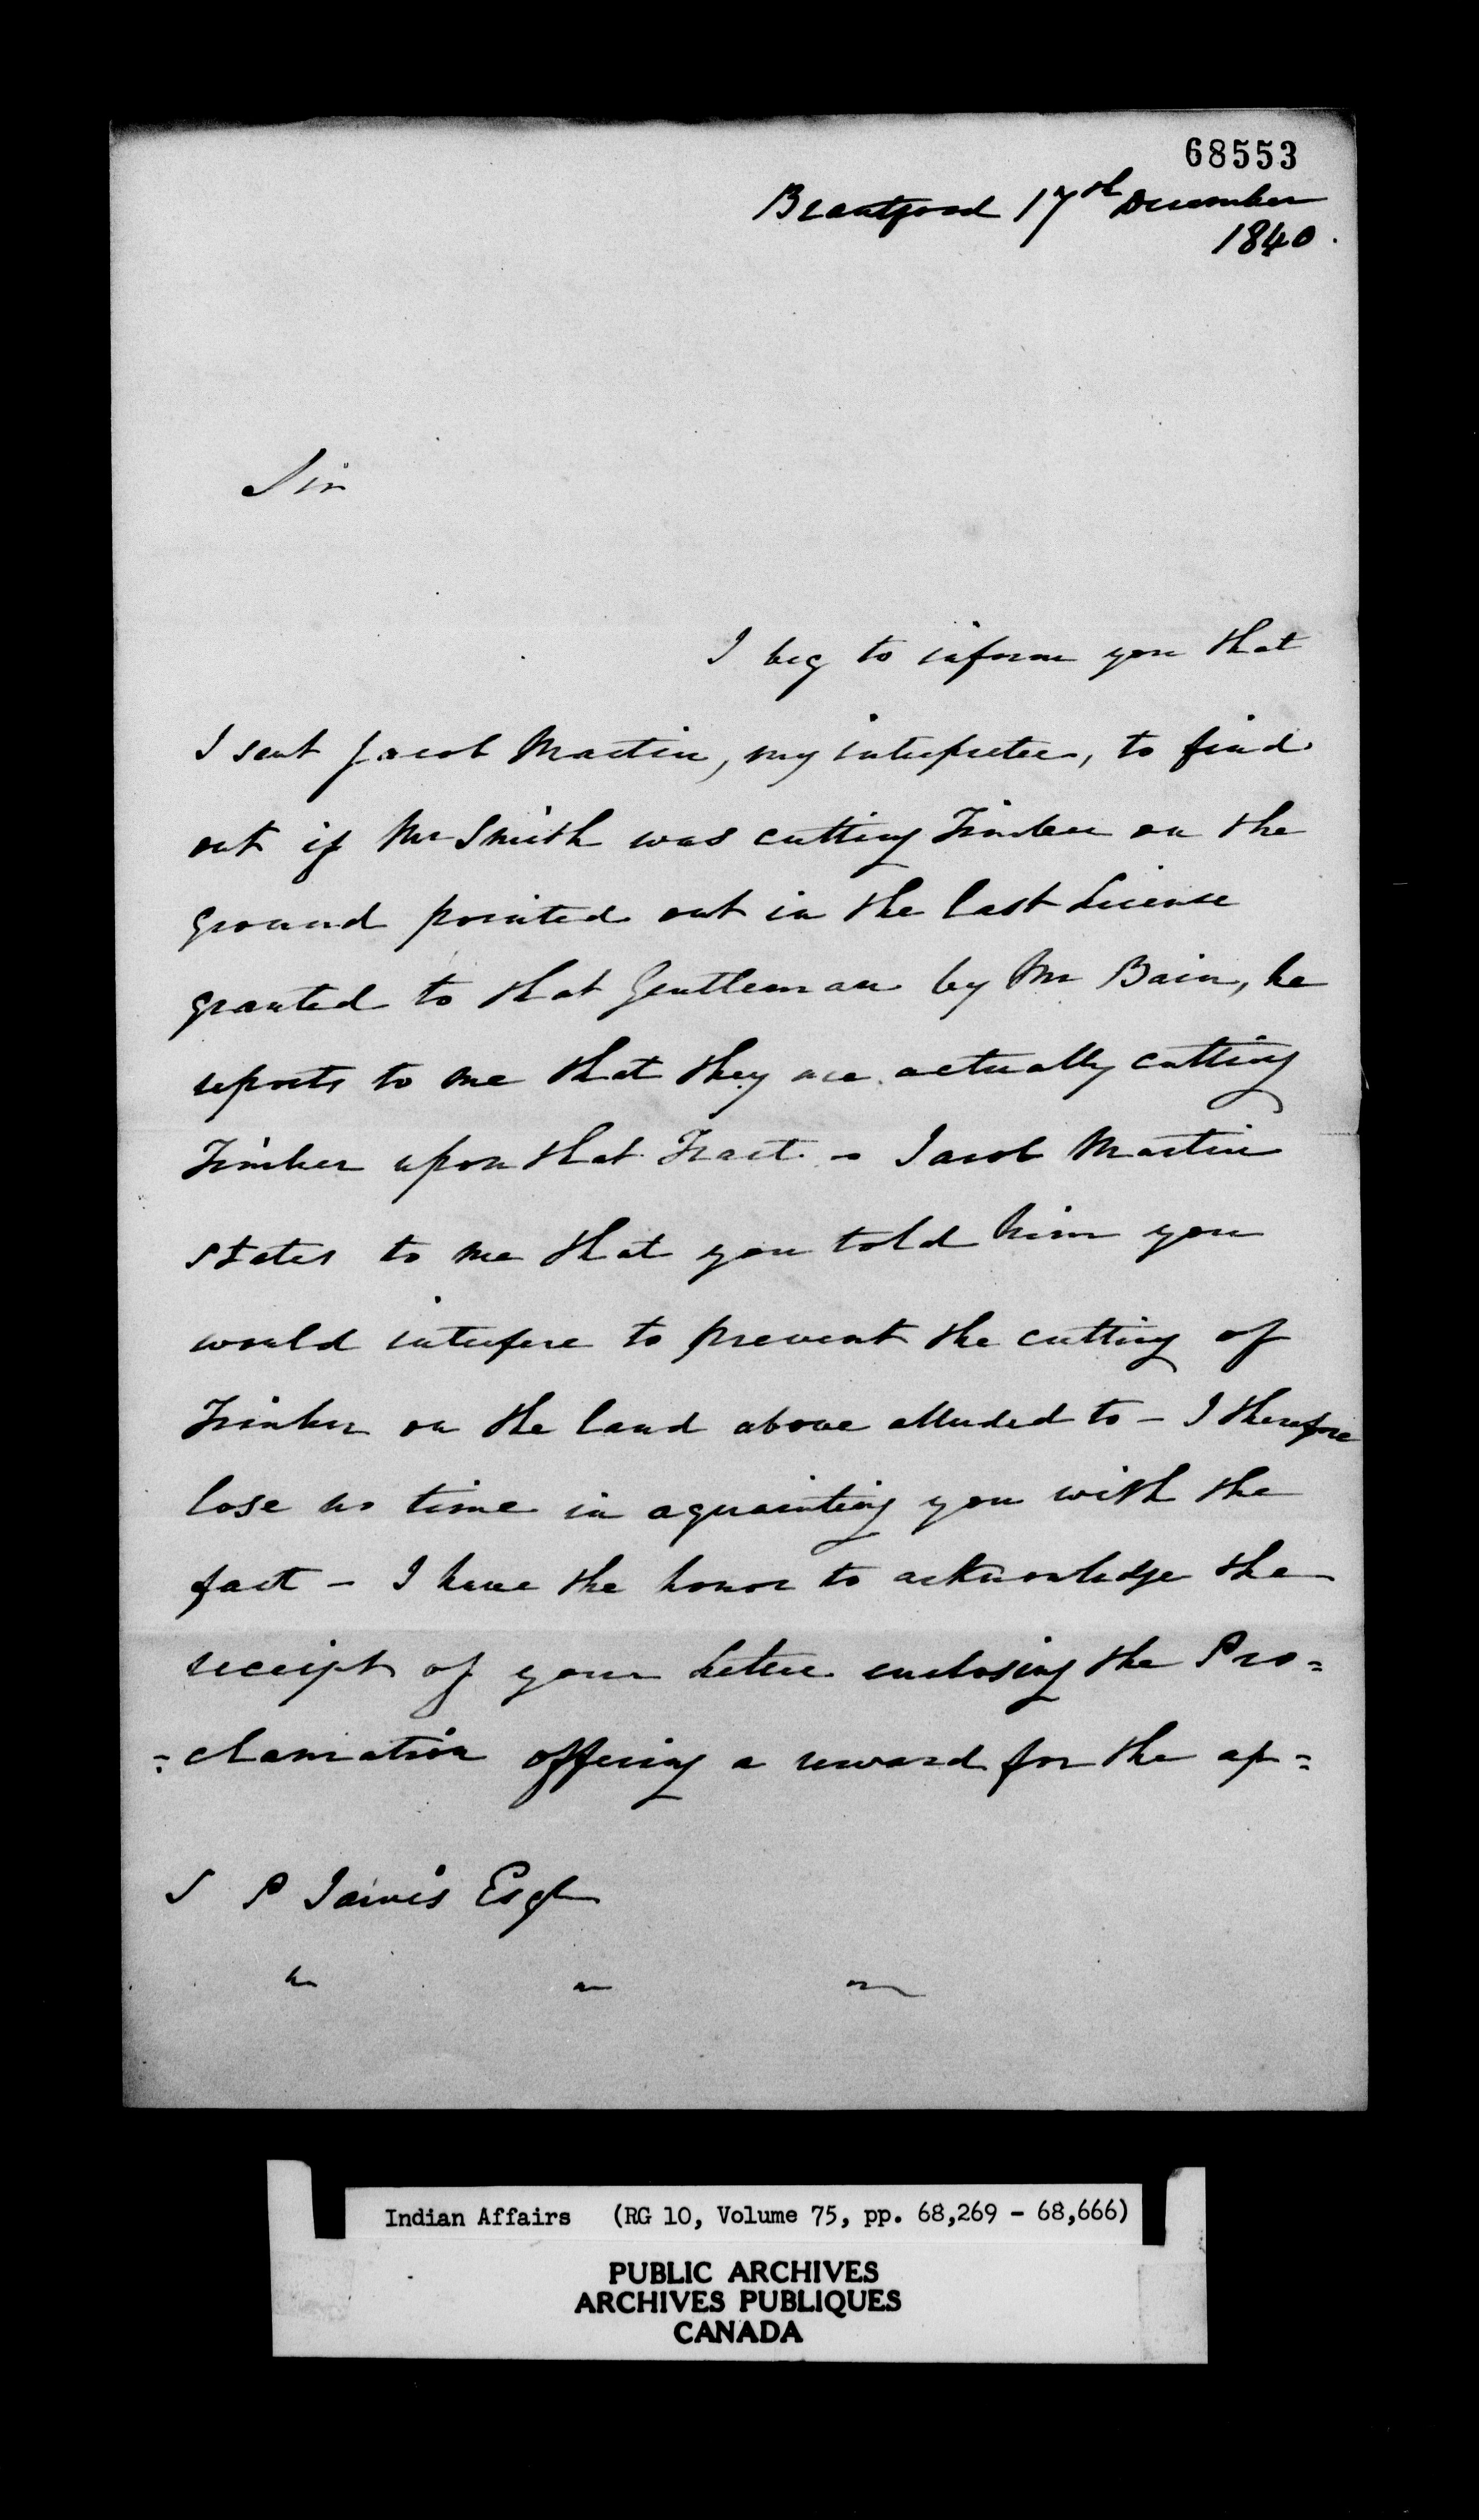 68553
Brantford 17th December
1840.
Sir
I beg to inform you that
I sent Jacob Martin, my interpreter, to find
out if Mr Smith was cutting Timber on the
ground pointed out in the last License
granted to that Gentleman by Mr Bain, he
reports to me that they are actually cutting
Timber upon that Tract - Jacob Martin
states to me that you told him you
would interfere to prevent the cutting of
Timber on the land above alluded to - I therefore
lose no time in aquainting you with the
fact - I have the honor to acknowledge the
receipt of your Letter enclosing the Pro=
=clamation offering a reward for the ap=
S P Jarvis Esqr
" " "
Indian Affairs (RG 10, Volume 75, pp. 68,269 - 68,666)
PUBLIC ARCHIVES
ARCHIVES PUBLIQUES
CANADA